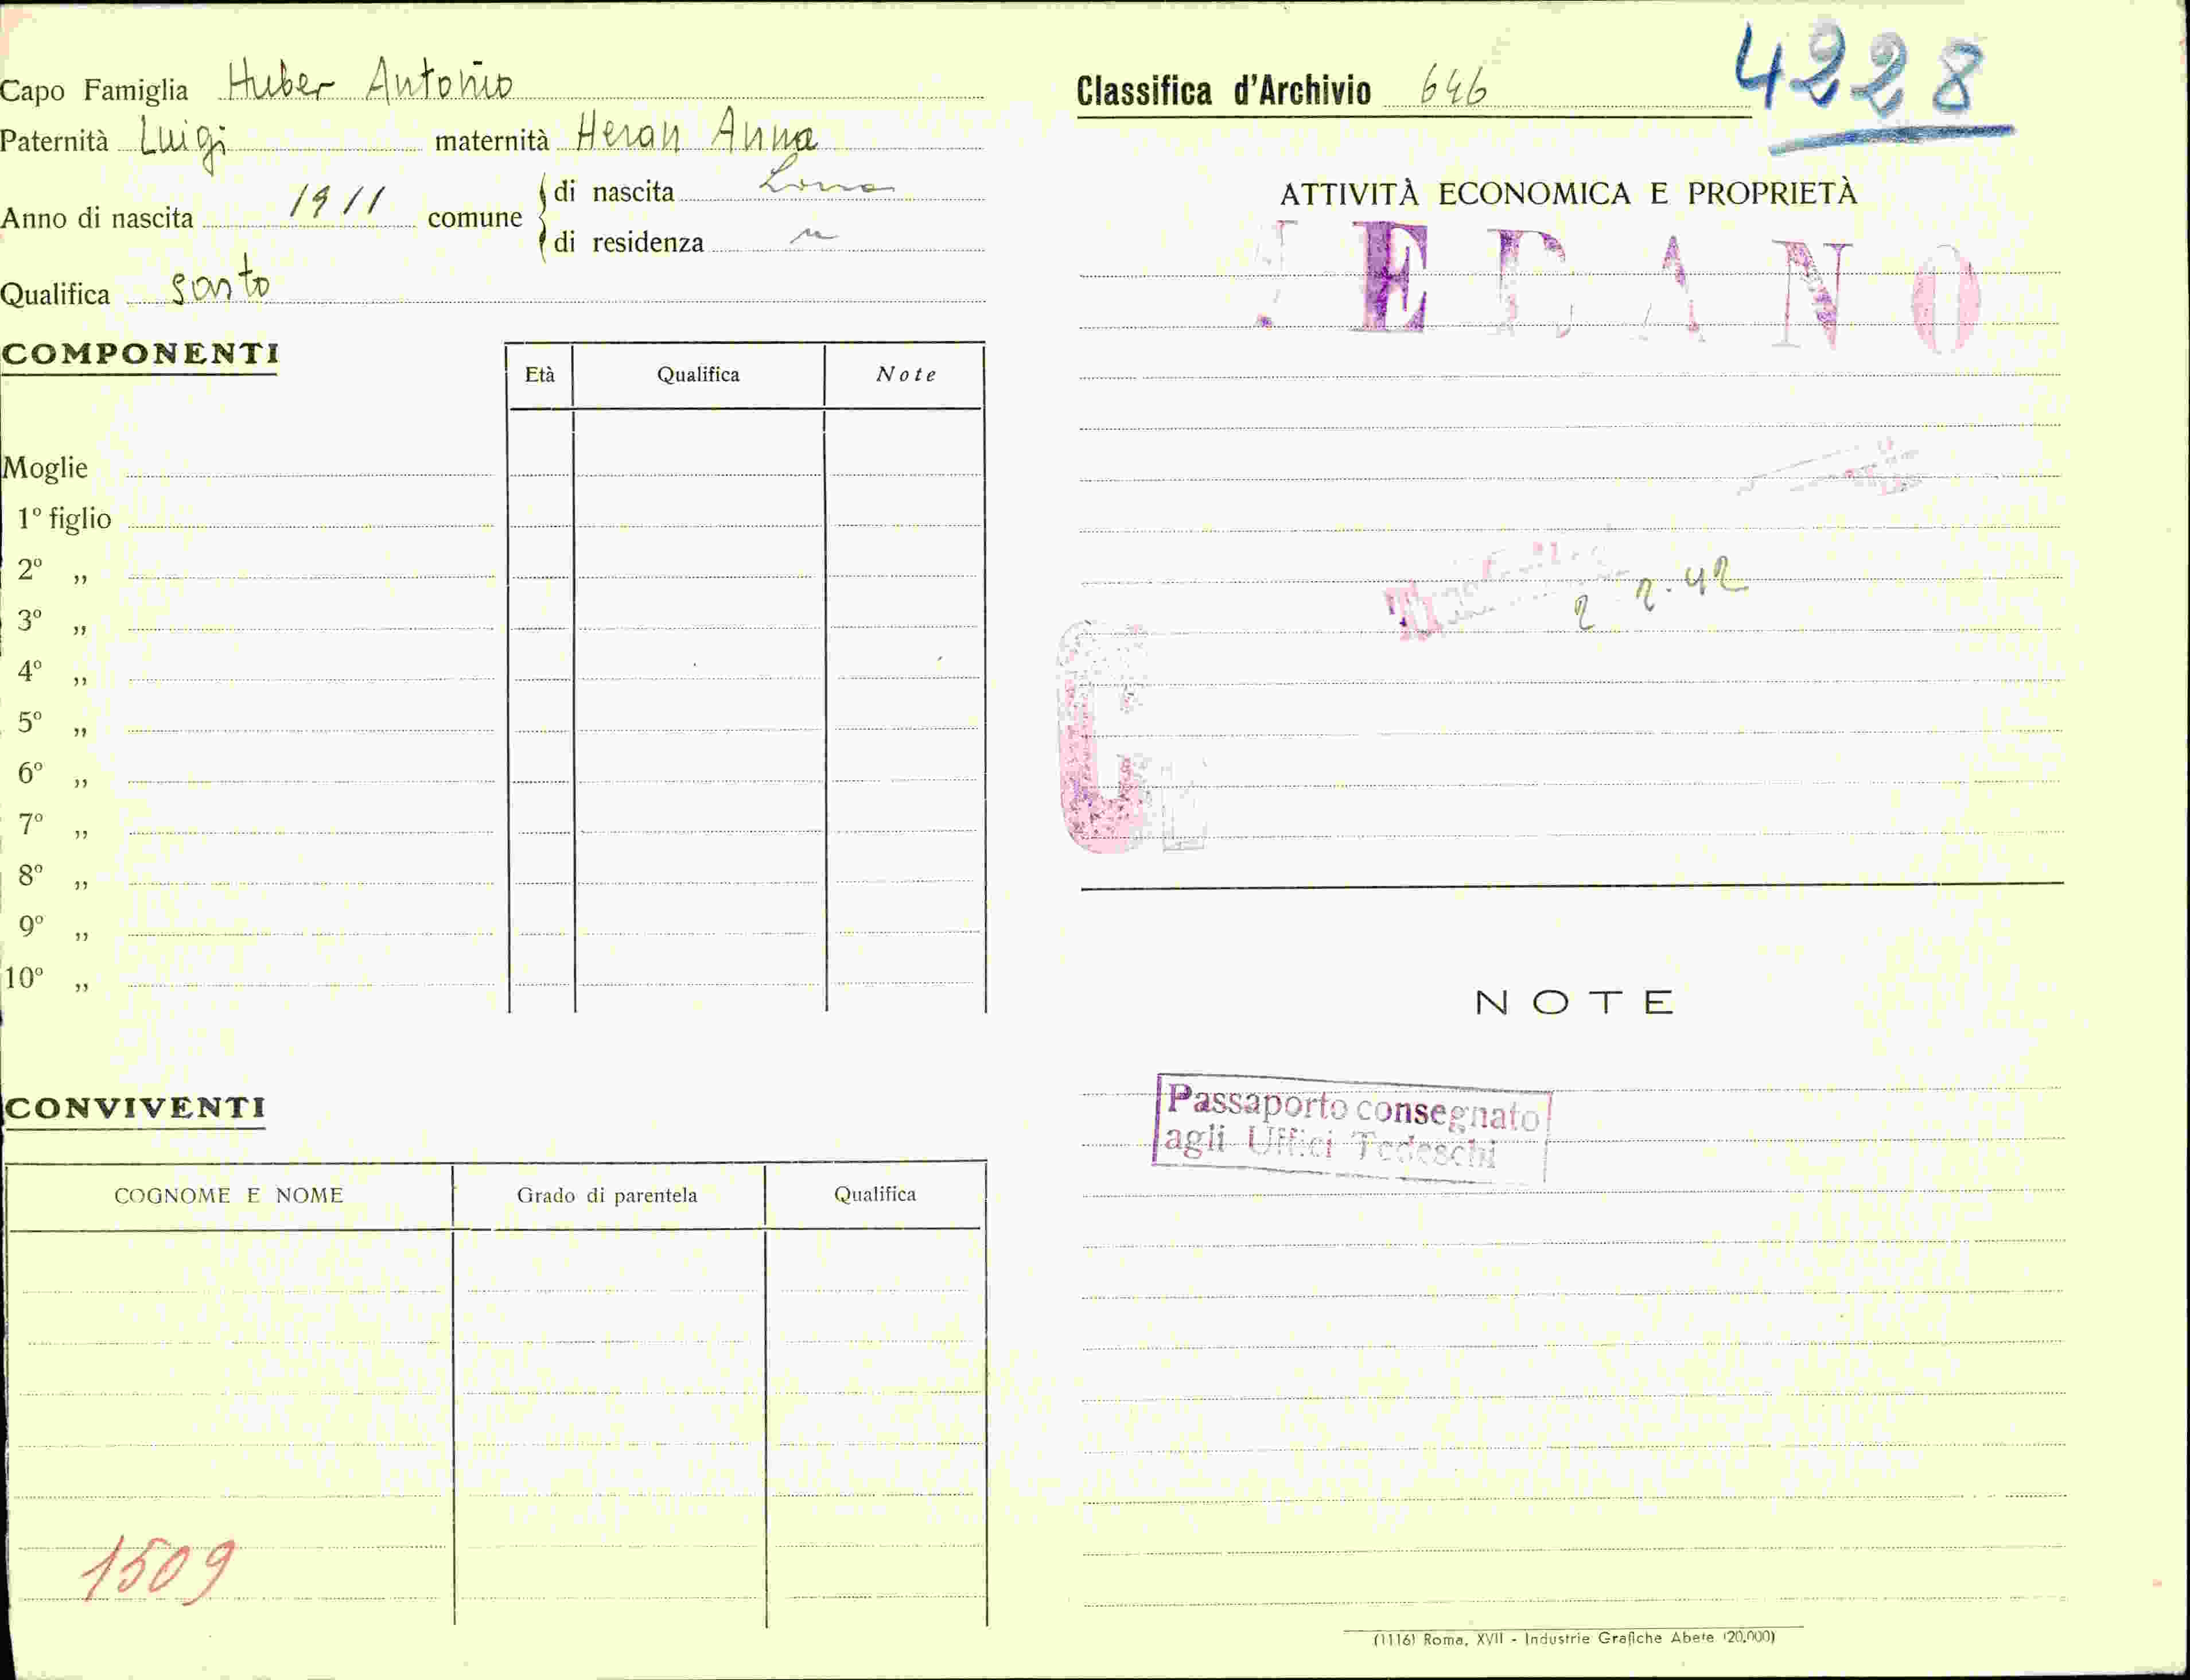 Capo Famiglia Huber Antonio
Paternità Luigi maternità Heran Anna
Anno di nascita 1911 comune di nascita Lana
di residenza "
Qualifica sarto
COMPONENTI
Età Qualifica Note
Moglie
1º figlio
2º "
3º "
4º "
5º "
6º "
7º "
8º "
9º "
10º "
CONVIVENTI
COGNOME E NOME Grado di parentela Qualifica
1509
Classifica d'Archivio 646
4228
ATTIVITÀ ECONOMICA E PROPRIETÀ
MERANO
2 2.42
NOTE
Passaporto consegnato
agli Uffici Tedeschi
(1116) Roma, XVII - Industrie Grafiche Abete (20.000)